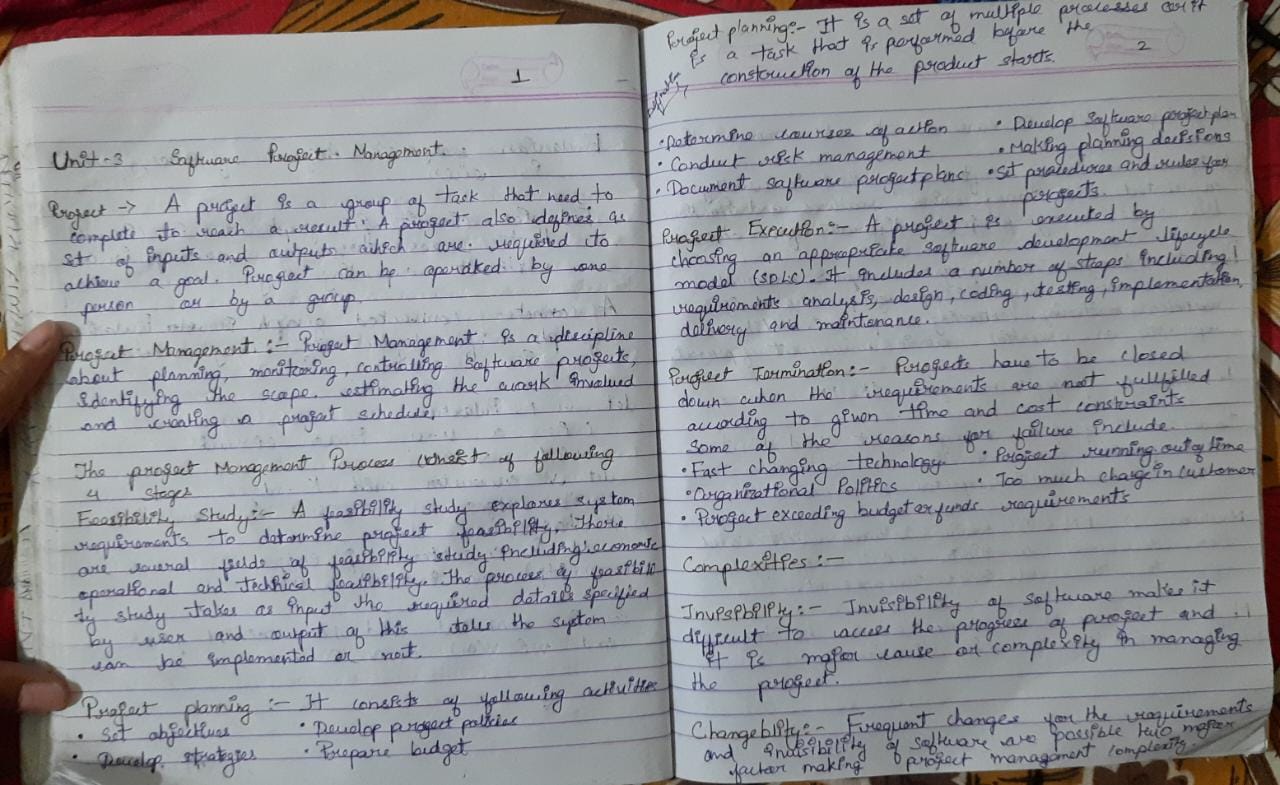 1
Unit-3 Software Project Management.
Project → A project is a group of task that need to
complete to reach a result. A project also defines as
set of inputs and outputs which are required to
achieve a goal. Project can be operated by one
person or by a group.
Project Management :- Project Management is a discipline
about planning, monitoring, controlling software projects,
identifying the scope estimating the work involved
and creating a project schedule,
The project Management Process consist of following
4 stages
Feasibility Study:- A feasibility study explores system
requirements to determine project feasibility. There
are several fields of feasibility study including economic
operational and technical feasibility. The process of feasibili
ty study takes as input the required details specified
by user and output of this tells the system
can be implemented or not.
Project planning :- It consists of following activities
• Set objectives • Develop project policies
• Develop strategies • Prepare budget
Project planning:- It is a set of multiple processes or it
is a task that is performed before the
construction of the product starts.
2
• Determine courses of action • Develop software project plan
• Conduct risk management • Making planning decisions
• Document software project plans • Set procedures and rules for
projects.
Project Execution:- A project is executed by
choosing an appropriate software development lifecycle
model (SDLC). It includes a number of steps including
requirements analysis, design, coding, testing, implementation,
delivery and maintenance.
Project Termination:- Projects have to be closed
down when the requirements are not fullfilled
according to given time and cost constraints
Some of the reasons for failure include.
• Fast changing technology • Project running out of time
• Organizational Politics • Too much change in customer
• Project exceeding budget or funds requirements
Complexities :-
Invisibility:- Invisibility of software makes it
difficult to access the progress of project and
it is major cause or complexity in managing
the project.
Changeblity:- Frequent changes for the requirements
and invisibility of software are possible two major
factor making project management complexity.